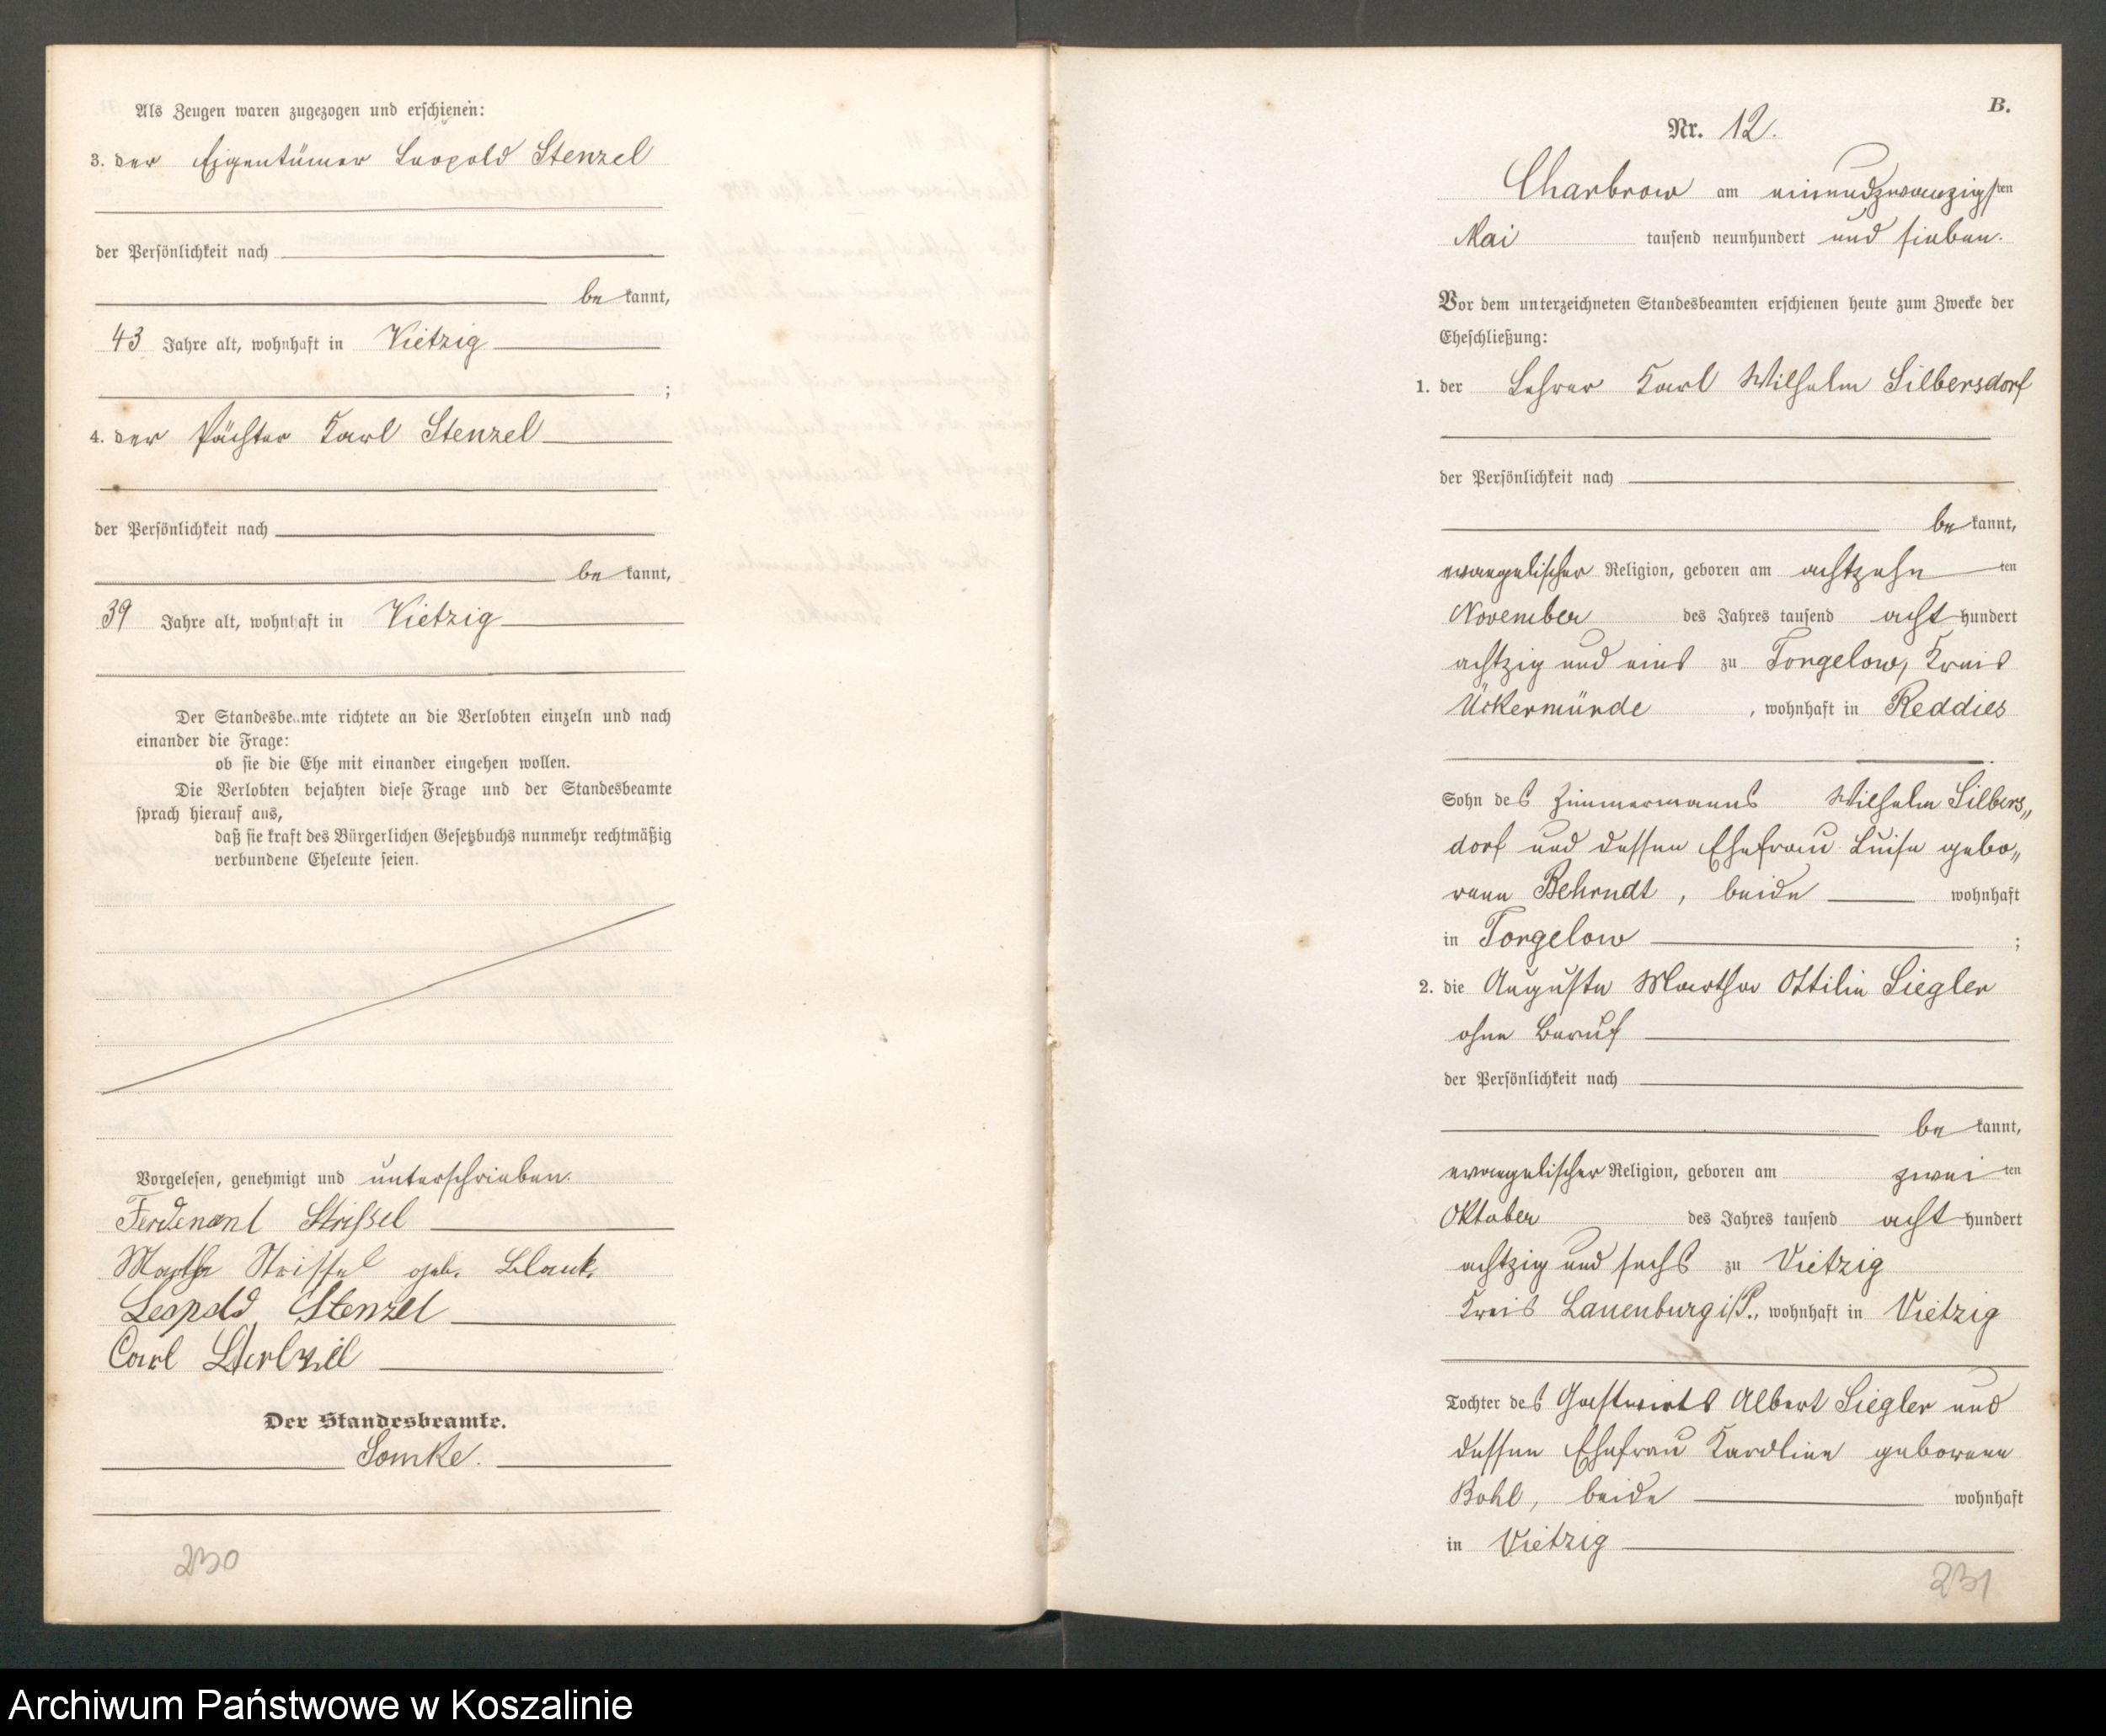 Als Zeugen waren zugezogen und erschienen:
3. der Eigentümer Leopold Stenzel
der Persönlichkeit nach
be kannt,
43 Jahre alt, wohnhaft in Vietzig
;
4. der Pächter Karl Stenzel
der Persönlichkeit nach
be kannt,
39 Jahre alt, wohnhaft in Vietzig
Der Standesbeamte richtete an die Verlobten einzeln und nach
einander die Frage:
ob sie die Ehe mit einander eingehen wollen.
Die Verlobten bejahten diese Frage und der Standesbeamte
sprach hierauf aus,
daß sie kraft des Bürgerlichen Gesetzbuchs nunmehr rechtmäßig
verbundene Eheleute seien.
Vorgelesen, genehmigt und unterschrieben.
Ferdenant Strissel
Martha Strissel geb. Blank.
Leopold Stenzel
Carl
Der Standesbeamte.
Somke.
230
B.
Nr. 12.
Charbrow am einundzwanzigsten
Mai tausend neunhundert und sieben.
Vor dem unterzeichneten Standesbeamten erschienen heute zum Zwecke der
Eheschließung:
1. der Lehrer Karl Wilhelm Silbersdorf
der Persönlichkeit nach
be kannt,
evangelischer Religion, geboren am achtzehn ten
November des Jahres tausend acht hundert
achtzig und eins zu Torgelow, Kreis
Ückermünde, wohnhaft in Reddies
Sohn des Zimmermanns Wilhelm Silbers„
dorf und dessen Ehefrau Luise gebo„
rene Behrndt, beide wohnhaft
in Torgelow ;
2. die Auguste Martha Ottilie Siegler
ohne Beruf
der Persönlichkeit nach
be kannt,
evangelischer Religion, geboren am zwei ten
Oktober des Jahres tausend acht hundert
achtzig und sechs zu Vietzig
Kreis Lauenburg i/P., wohnhaft in Vietzig
Tochter des Gastwirts Albert Siegler und
dessen Ehefrau Karoline geborene
Bohl, beide wohnhaft
in Vietzig
231
Archiwum Państwowe w Koszalinie